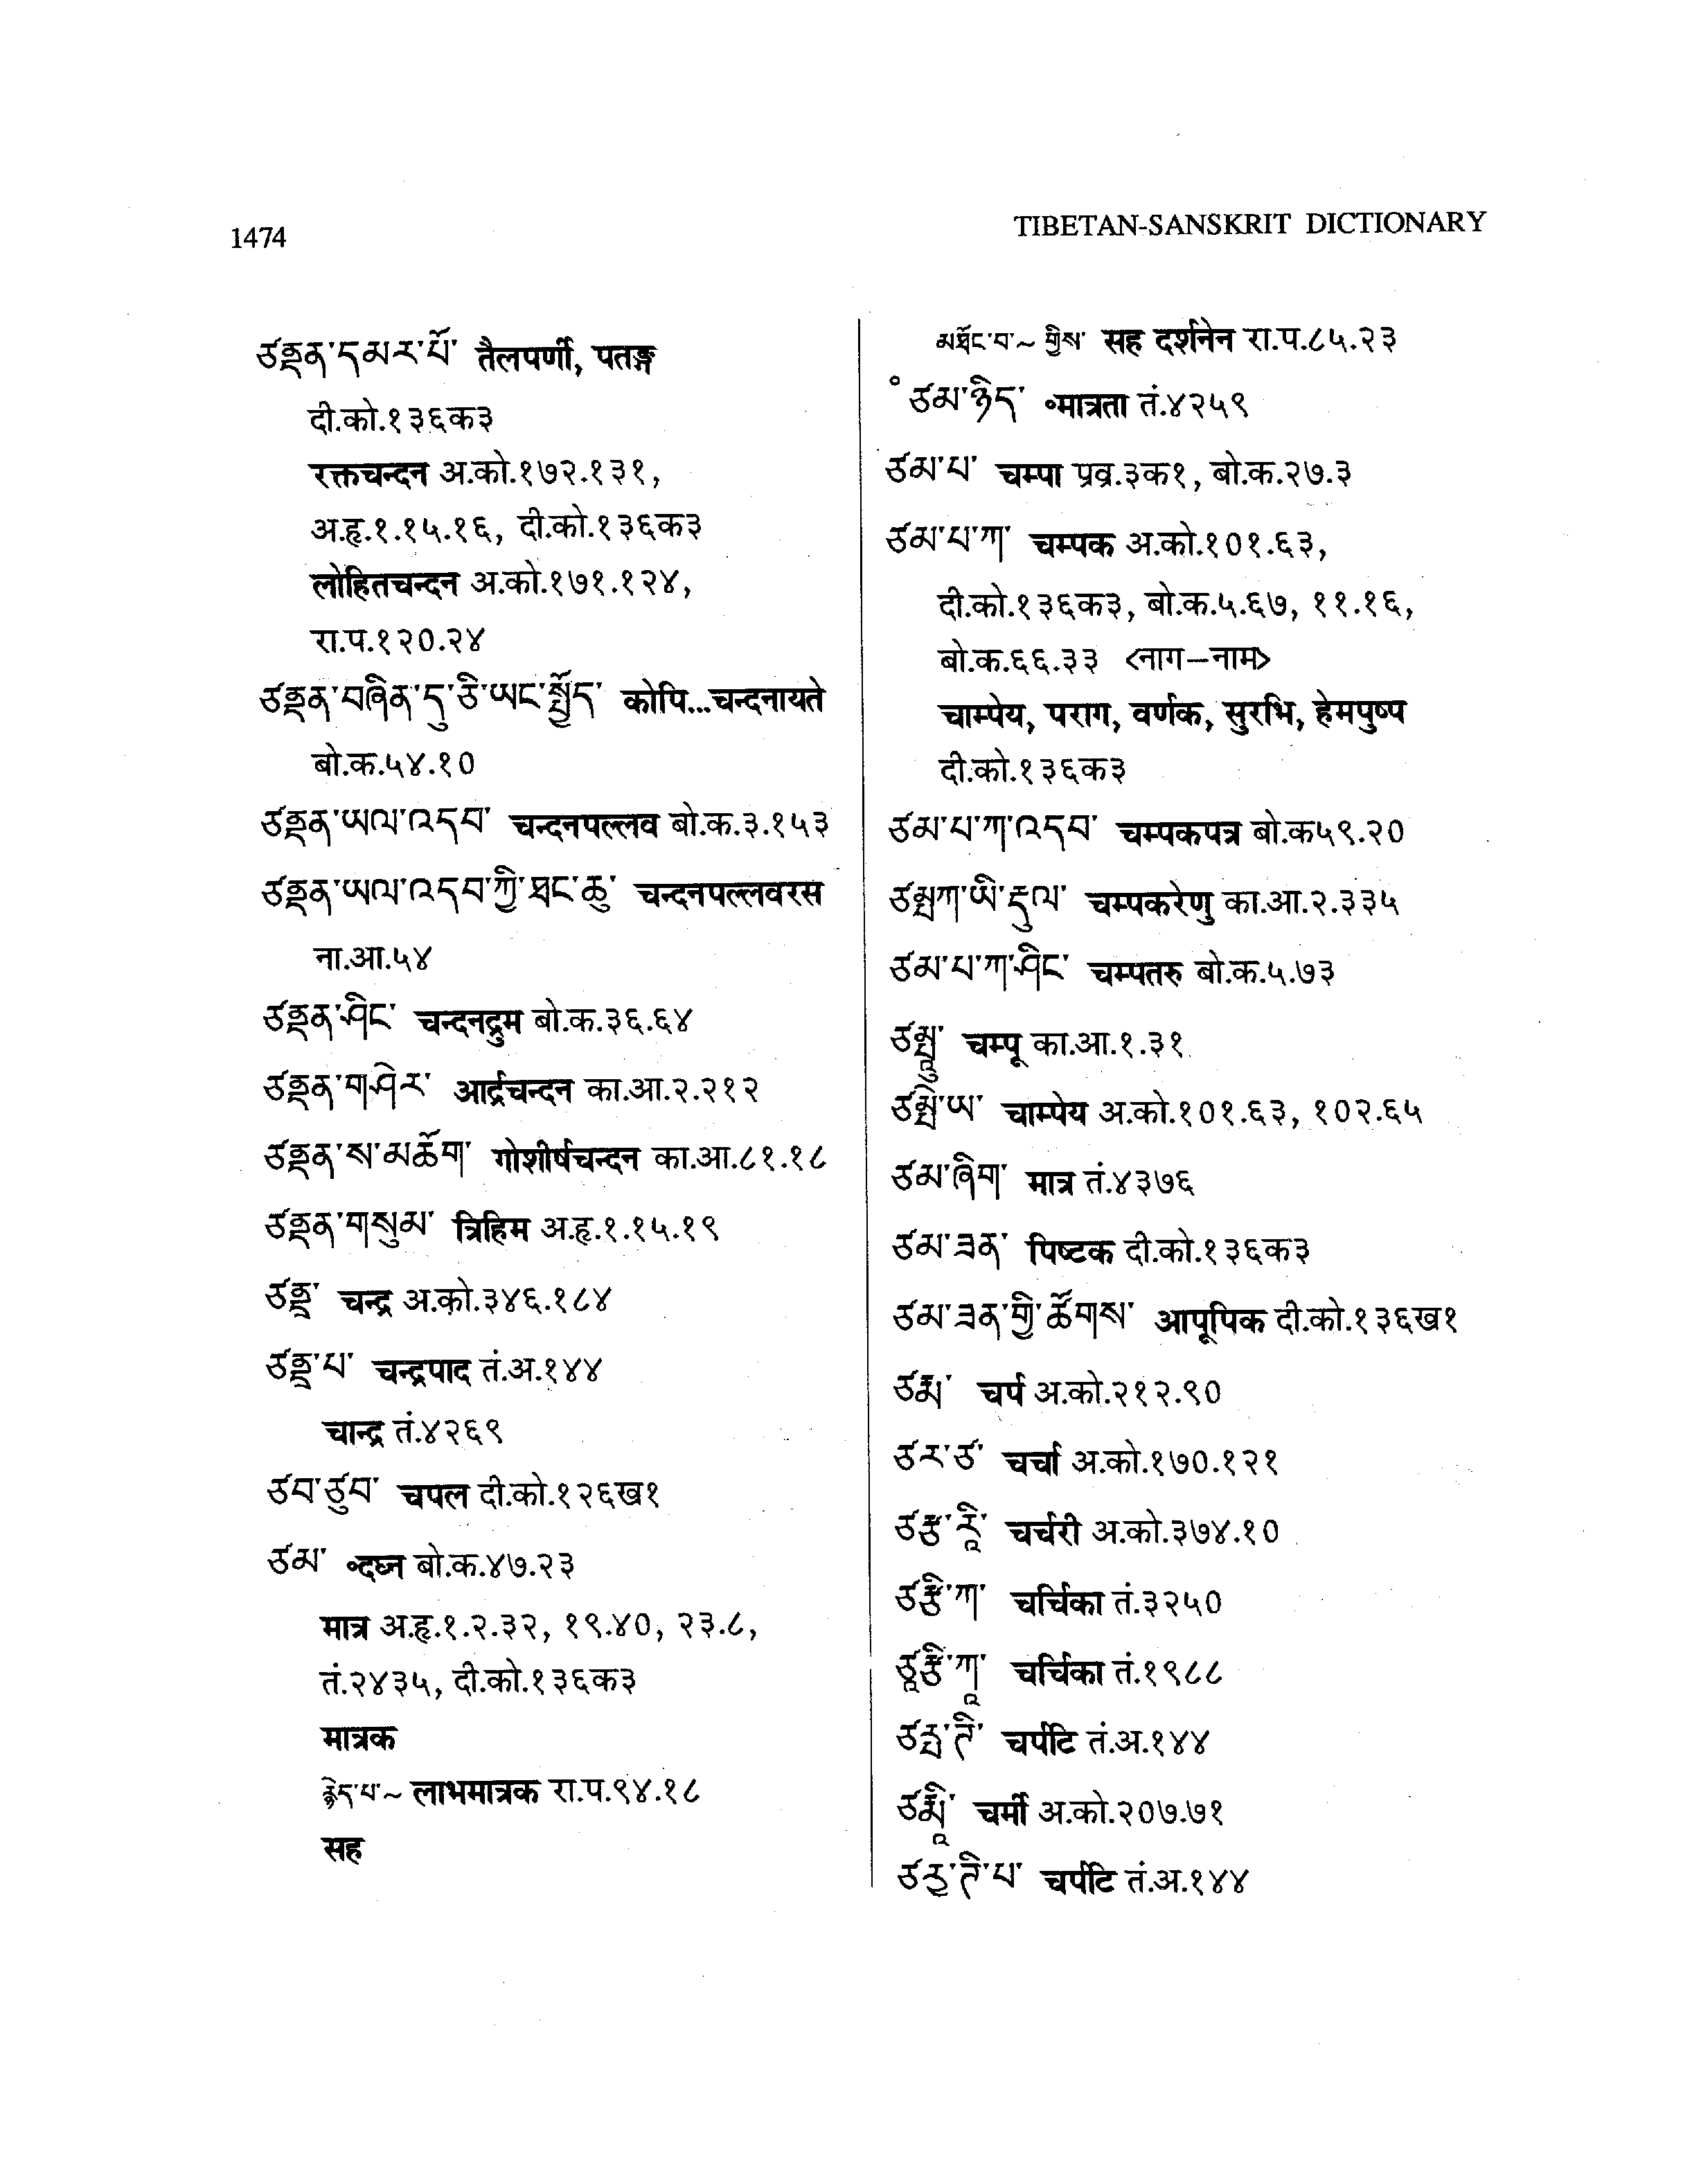 1474
TIBETAN-SANSKRIT DICTIONARY
ཙནྡན་དམར་པོ་ तैलपर्णी, पतङ्ग
दी.को.१३६क३
रक्तचन्दन अ.को.१७२.१३१,
अ.हृ.१.१५.१६, दी.को.१३६क३
लोहितचन्दन अ.को.१७१.१२४,
रा.प.१२०.२४
ཙནྡན་བཞིན་དུ་ཅི་ཡང་སྤྱོད་ कोपि...चन्दनायते
बो.क.५४.१०
ཙནྡན་ཡལ་འདབ་ चन्दनपल्लव बो.क.३.१५३
ཙནྡན་ཡལ་འདབ་ཀྱི་ཐང་ཆུ་ चन्दनपल्लवरस
ना.आ.५४
ཙནྡན་ཤིང་ चन्दनद्रुम बो.क.३६.६४
ཙནྡན་གཤེར་ आर्द्रचन्दन का.आ.२.२१२
ཙནྡན་ས་མཆོག་ गोशीर्षचन्दन का.आ.८१.१८
ཙནྡན་གསུམ་ त्रिहिम अ.हृ.१.१५.१९
ཙནྡྲ་ चन्द्र अ.को.३४६.१८४
ཙནྡྲ་པ་ चन्द्रपाद तं.अ.१४४
चान्द्र तं.४२६९
ཙབ་ཙུབ་ चपल दी.को.१२६ख१
ཙམ་ ॰दघ्न बो.क.४७.२३
मात्र अ.हृ.१.२.३२, १९.४०, २३.८,
तं.२४३५, दी.को.१३६क३
मात्रक
རྙེད་པ་~ लाभमात्रक रा.प.९४.१८
सह
མཐོང་བ་~ གྱིས་ सह दर्शनेन रा.प.८५.२३
°ཙམ་ཉིད་ ॰मात्रता तं.४२५९
ཙམ་པ་ चम्पा प्रव्र.३क१, बो.क.२७.३
ཙམ་པ་ཀ་ चम्पक अ.को.१०१.६३,
दी.को.१३६क३, बो.क.५.६७, ११.१६,
बो.क.६६.३३ <नाग-नाम>
चाम्पेय, पराग, वर्णक, सुरभि, हेमपुष्प
दी.को.१३६क३
ཙམ་པ་ཀ་འདབ་ चम्पकपत्र बो.क५९.२०
ཙམྤཀ་ཡི་རྡུལ་ चम्पकरेणु का.आ.२.३३५
ཙམ་པ་ཀ་ཤིང་ चम्पतरु बो.क.५.७३
ཙམྤཱུ་ चम्पू का.आ.१.३१
ཙམྤེ་ཡ་ चाम्पेय अ.को.१०१.६३, १०२.६५
ཙམ་ཞིག་ मात्र तं.४३७६
ཙམ་ཟན་ पिष्टक दी.को.१३६क३
ཙམ་ཟན་གྱི་ཚོགས་ आपूपिक दी.को.१३६ख१
ཙརྨ་ चर्प अ.को.२१२.९०
ཙར་ཙ་ चर्चा अ.को.१७०.१२१
ཙརྩ་རཱི་ चर्चरी अ.को.३७४.१०
ཙརྩི་ཀ་ चर्चिका तं.३२५०
ཙཱརྩི་ཀཱ་ चर्चिका तं.१९८८
ཙརྤ་ཊི་ चर्पटि तं.अ.१४४
ཙརྨཱི་ चर्मी अ.को.२०७.७१
ཙརྱ་ཊི་པ་ चर्पटि तं.अ.१४४